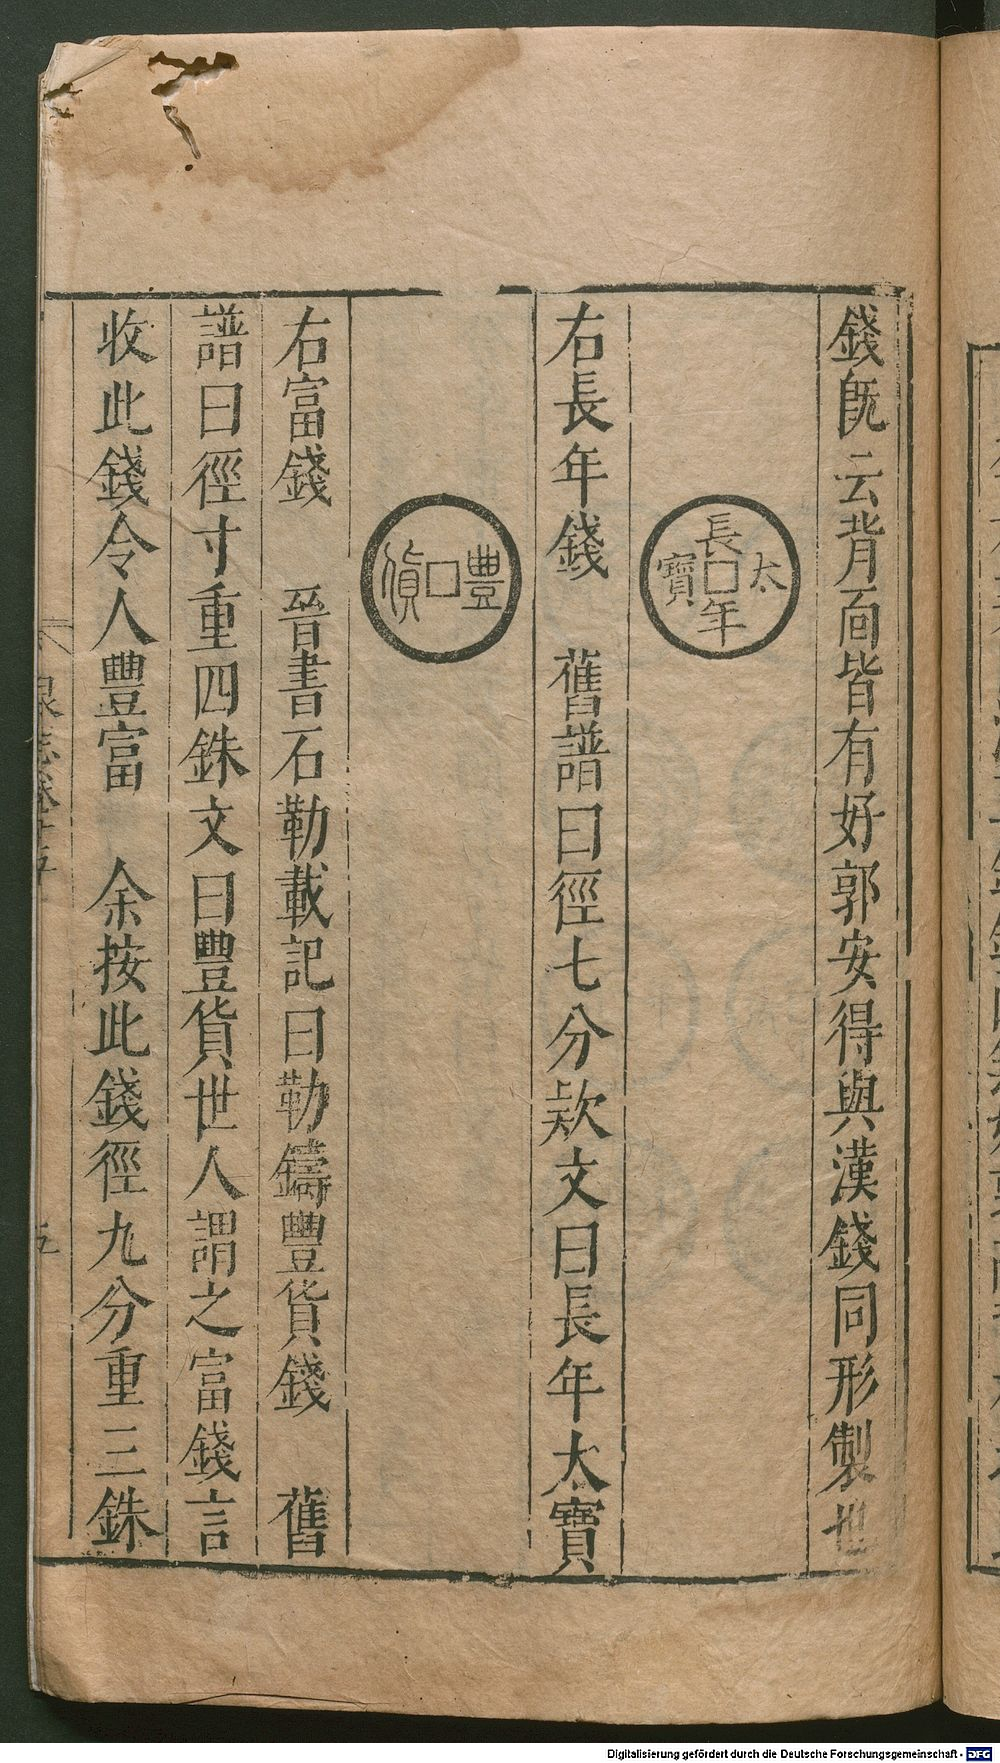 錢旣云背面皆有好郭安得與漢錢同形製世
長年太寶
右長年錢　舊譜曰徑七分欵文曰長年太寶
豐貨
右富錢　晉書石勒載記曰勒鑄豐貨錢　舊
譜曰徑寸重四銖文曰豐貨世人謂之富錢言
收此錢令人豐富　余按此錢徑九分重三銖
泉志卷十五
五
Digitalisierung gefördert durch die Deutsche Forschungsgemeinschaft - DFG